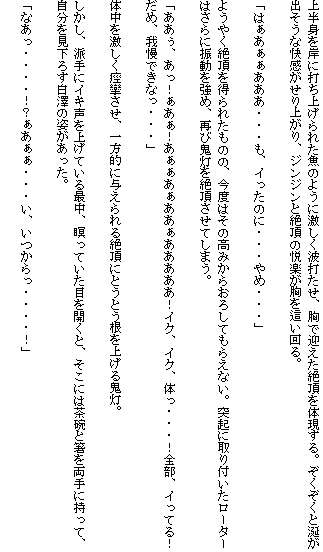 上半身を岸に打ち上げられた魚のように激しく波打たせ、胸で迎えた絶頂を体現する。ぞくぞくと涎が
出そうな快感がせり上がり、ジンジンと絶頂の悦楽が胸を這い回る。
「はぁあぁぁあああ・・・も、イったのに・・・やめ・・・」
ようやく絶頂を得られたものの、今度はその高みからおろしてもらえない。突起に取り付いたローター
はさらに振動を強め、再び鬼灯を絶頂させてしまう。
「ああぅ、あっ！ぁあぁ！あぁぁあぁあああぁああああああ！イク、イク、体っ・・・！全部、イってる！
だめ、我慢できなっ・・・」
体中を激しく痙攣させ、一方的に与えられる絶頂にとうとう根を上げる鬼灯。
しかし、派手にイキ声を上げている最中、瞑っていた目を開くと、そこには茶碗と箸を両手に持って、
自分を見下ろす白澤の姿があった。
「なあっ・・・・！？ぁあぁぁ・・・い、いつからっ・・・・！」